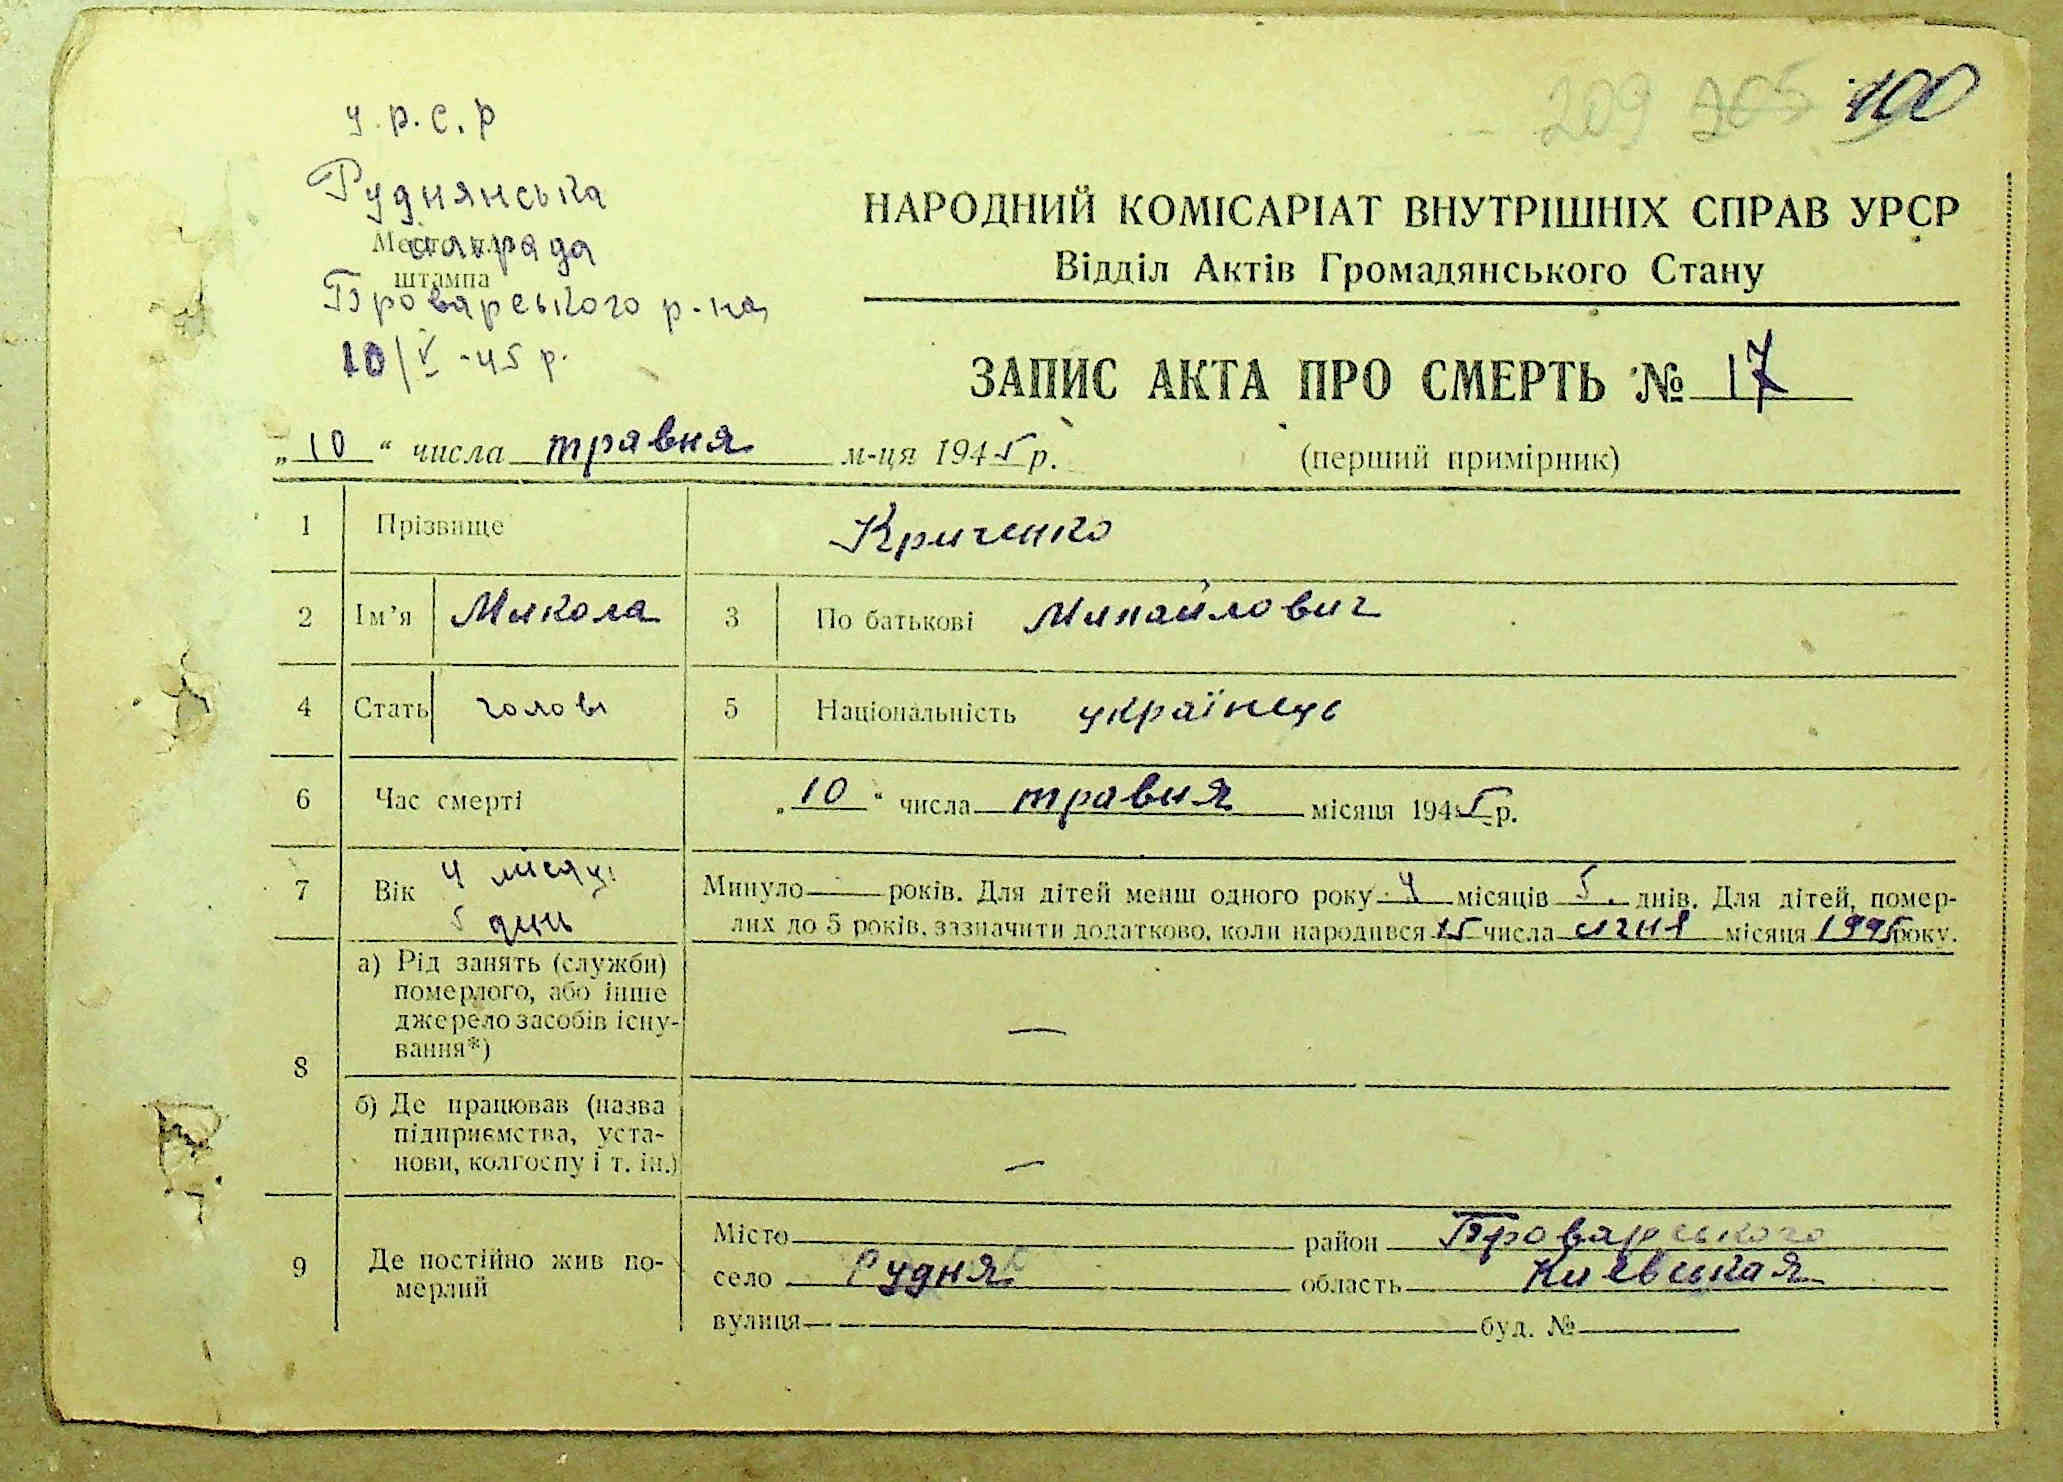 209 205 100
У.р.с.р
Руднянська
Місце для
сільрада
штампа
Броварського р-на
10/V -45 р.
НАРОДНИЙ КОМІСАРІАТ ВНУТРІШНІХ СПРАВ УРСР
Відділ Актів Громадянського Стану
ЗАПИС АКТА ПРО СМЕРТЬ № 17
„10“ числа травня м-ця 1945 р. (перший примірник)
1 Прізвище Криченко
2 Ім’я Микола 3 По батькові Михайлович
4 Стать голові 5 Національність українець
6 Час смерті „10“ числа травня місяця 1945 р.
7 Вік 4 місяці 5 день
Минуло — років. Для дітей менш одного року 4 місяців 5 днів. Для дітей, помер-
лих до 5 років, зазначити додатково, коли народився 5 числа січня місяця 1945 року.
8 а) Рід занять (служби)
померлого, або інше
джерело засобів існу-
вання*) —
б) Де працював (назва
підприємства, уста-
нови, колгоспу і т. ін.) —
9 Де постійно жив по-
мерлий
Місто район Броварського
село Рудня область Киевская
вулиця буд. №